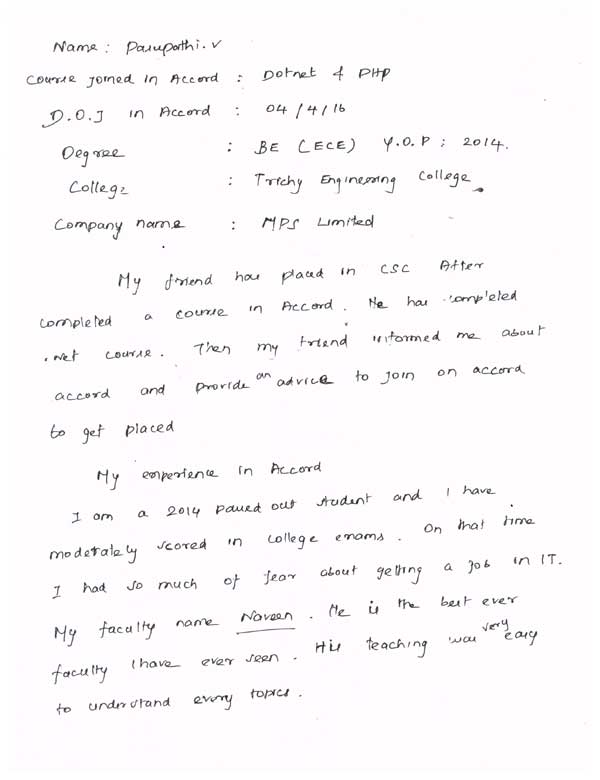 Name : Pasupathi.V
Course joined in Accord : Dotnet & PHP
D.O.J in Accord : 04/4/16
Degree : BE (ECE) Y.O.P : 2014.
College : Trichy Engineering College.
Company name : MPS Limited
My friend has placed in CSC After
completed a course in Accord. He has completed
.net course. Then my friend informed me about
accord and provide an advice to join on accord
to get placed
My experience in Accord
I am a 2014 passed out student and I have
moderately scored in college exams. On that time
I had so much of fear about getting a job in IT.
My faculty name Naveen. He is the best ever
faculty I have ever seen. His teaching was very easy
to understand every topics.